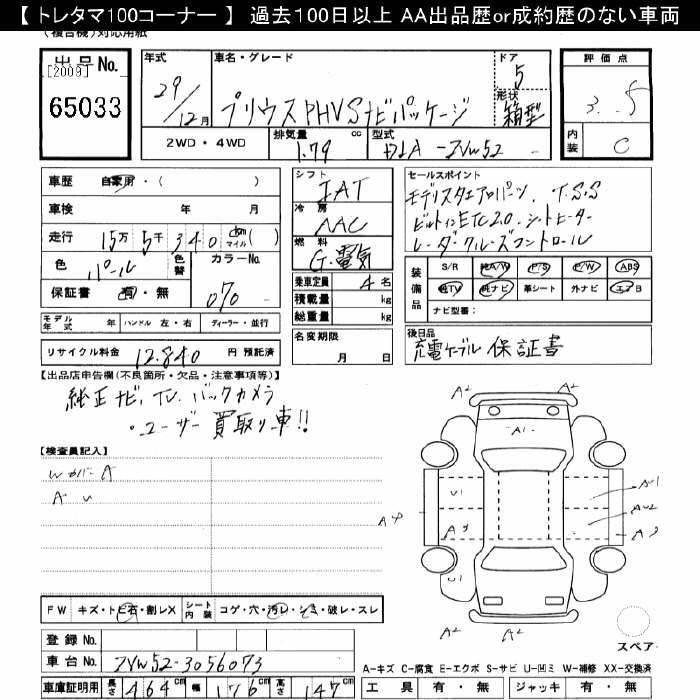 【 トレタマ100コーナー 】 過去100日以上 AA出品歴or成約歴のない車両
(複合機)対応用紙
出品No.
[2009]
65033
年式
29/12月
車名・グレード
プリウスPHV Sナビパッケージ
ドア
5
形状
箱型
評価点
3.5
内装
C
2WD・4WD
排気量
1.79 cc
型式
DLA-ZVW52
車歴 自家用・( )
車検 年 月
走行 15万5千340 km マイル ( )
色 パール
色替
カラーNo.
070
保証書 有・無
シフト
IAT
冷房
AAC
燃料
G.電気
乗車定員 4名
積載量 kg
総重量 kg
セールスポイント
モデリスタエアロパーツ. T.S.S
ビルトインETC2.0. シートヒーター
レーダークルーズコントロール
装備品
S/R 純A/W P/S P/W ABS
純TV 純ナビ 革シート 外ナビ エアB
ナビ型番:
モデル年式 年 ハンドル 左・右 ディーラー・並行
リサイクル料金 12.840 円 預託済
名変期限
月 日
後日品
充電ケーブル 保証書
【出品店申告欄(不良箇所・欠品・注意事項等)】
純正ナビ.TV.バックカメラ
・ユーザー買取り車!!
【検査員記入】
Wカバー A
A U
A2
A2
A1
U1
AU1
A4
AU2
A3
A3
U1
A2
A2
スペア
FW キズ・トビ石・割レX シート内装 コゲ・穴・汚レ・シミ・破レ・スレ
登録No.
車台No. ZVW52-3056073
車庫証明用 長さ 464cm 幅 176cm 高さ 147cm
A-キズ C-腐食 E-エクボ S-サビ U-凹ミ W-補修 XX-交換済
工具 有・無 ジャッキ 有・無